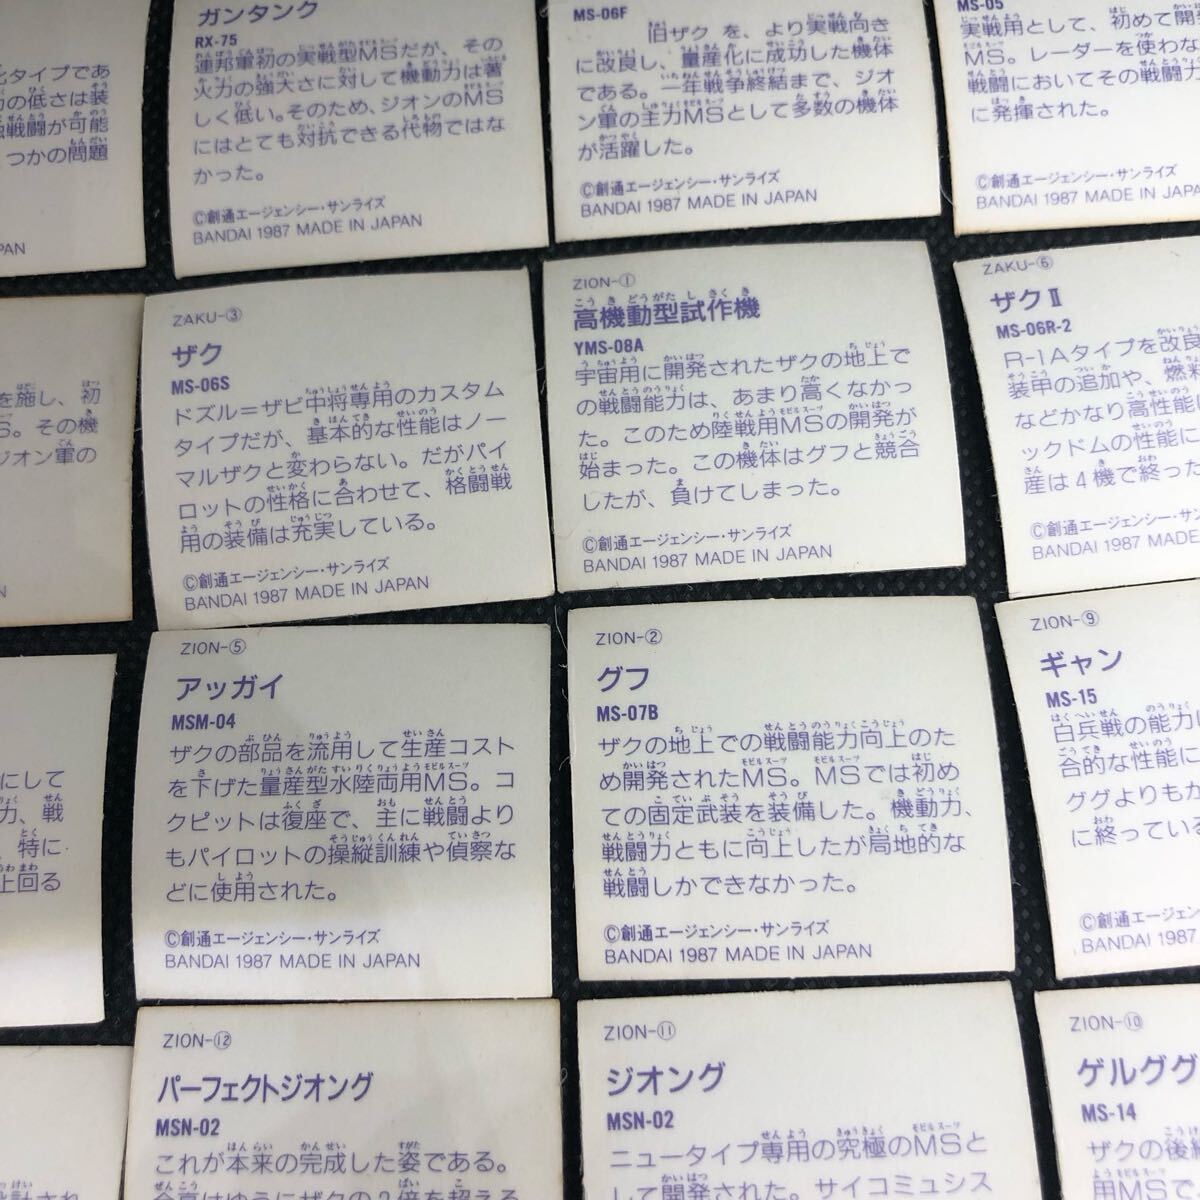 ガンタンク
RX-75
連邦軍初の実戦型MSだが、その
火力の強大さに対して機動力は著
しく低い。そのため、ジオンのMS
にはとても対抗できる代物ではな
かった。
©創通エージェンシー・サンライズ
BANDAI 1987 MADE IN JAPAN
MS-06F
旧ザク を、より実戦向き
に改良し、量産化に成功した機体
である。一年戦争終結まで、ジオ
ン軍の主力MSとして多数の機体
が活躍した。
©創通エージェンシー・サンライズ
BANDAI 1987 MADE IN JAPAN
MS-05
実戦用として、初めて開発
MS。レーダーを使わな
戦闘においてその戦闘力
に発揮された。
©創通エージェンシー・サンライズ
BANDAI 1987 MADE IN JAPA
タイプであ
の低さは装
戦闘が可能
つかの問題
PAN
ZAKU-③
ザク
MS-06S
ドズル＝ザビ中将専用のカスタム
タイプだが、基本的な性能はノー
マルザクと変わらない。だがパイ
ロットの性格に合わせて、格闘戦
用の装備は充実している。
©創通エージェンシー・サンライズ
BANDAI 1987 MADE IN JAPAN
ZION-①
高機動型試作機
YMS-08A
宇宙用に開発されたザクの地上で
の戦闘能力は、あまり高くなかっ
た。このため陸戦用MSの開発が
始まった。この機体はグフと競合
したが、負けてしまった。
©創通エージェンシー・サンライズ
BANDAI 1987 MADE IN JAPAN
ZAKU-⑥
ザクⅡ
MS-06R-2
R-1Aタイプを改良
装甲の追加や、燃料
などかなり高性能に
ックドムの性能に
産は4機で終った
©創通エージェンシー・サン
BANDAI 1987 MADE IN
を施し、初
S。その機
ジオン軍の
ZION-⑤
アッガイ
MSM-04
ザクの部品を流用して生産コスト
を下げた量産型水陸両用MS。コ
クピットは復座で、主に戦闘より
もパイロットの操縦訓練や偵察な
どに使用された。
©創通エージェンシー・サンライズ
BANDAI 1987 MADE IN JAPAN
ZION-②
グフ
MS-07B
ザクの地上での戦闘能力向上のた
め開発されたMS。MSでは初め
ての固定武装を装備した。機動力、
戦闘力ともに向上したが局地的な
戦闘しかできなかった。
©創通エージェンシー・サンライズ
BANDAI 1987 MADE IN JAPAN
ZION-⑨
ギャン
MS-15
白兵戦の能力
合的な性能に
ググよりもか
に終っている
©創通エージェン
BANDAI 1987
にして
力、戦
、特に
上回る
ZION-⑫
パーフェクトジオング
MSN-02
これが本来の完成した姿である。
ZION-⑪
ジオング
MSN-02
ニュータイプ専用の究極のMSと
して開発された。サイコミュシス
ZION-⑩
ゲルググ
MS-14
ザクの後継
用MSで